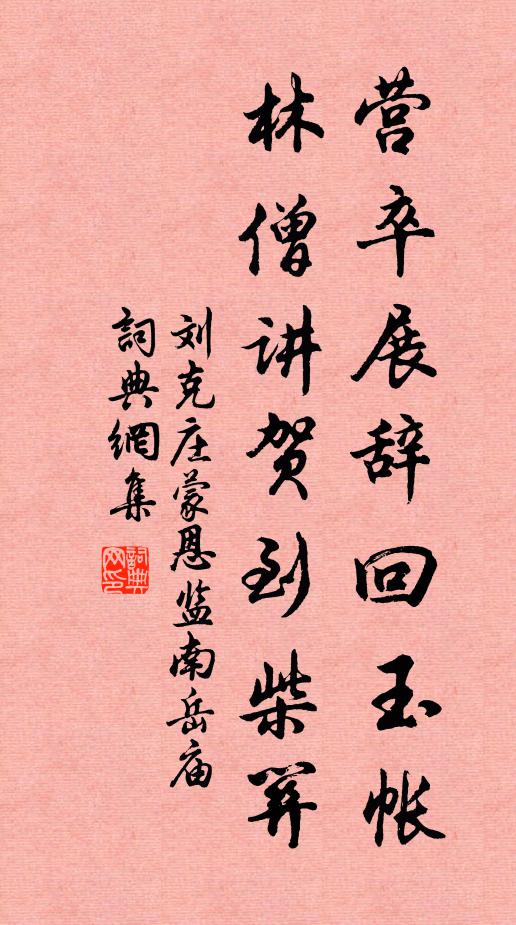 营卒展辞回玉帐
林僧讲贺到柴
刘克庄蒙恩监南岳庙
詞典網集
詞典网印